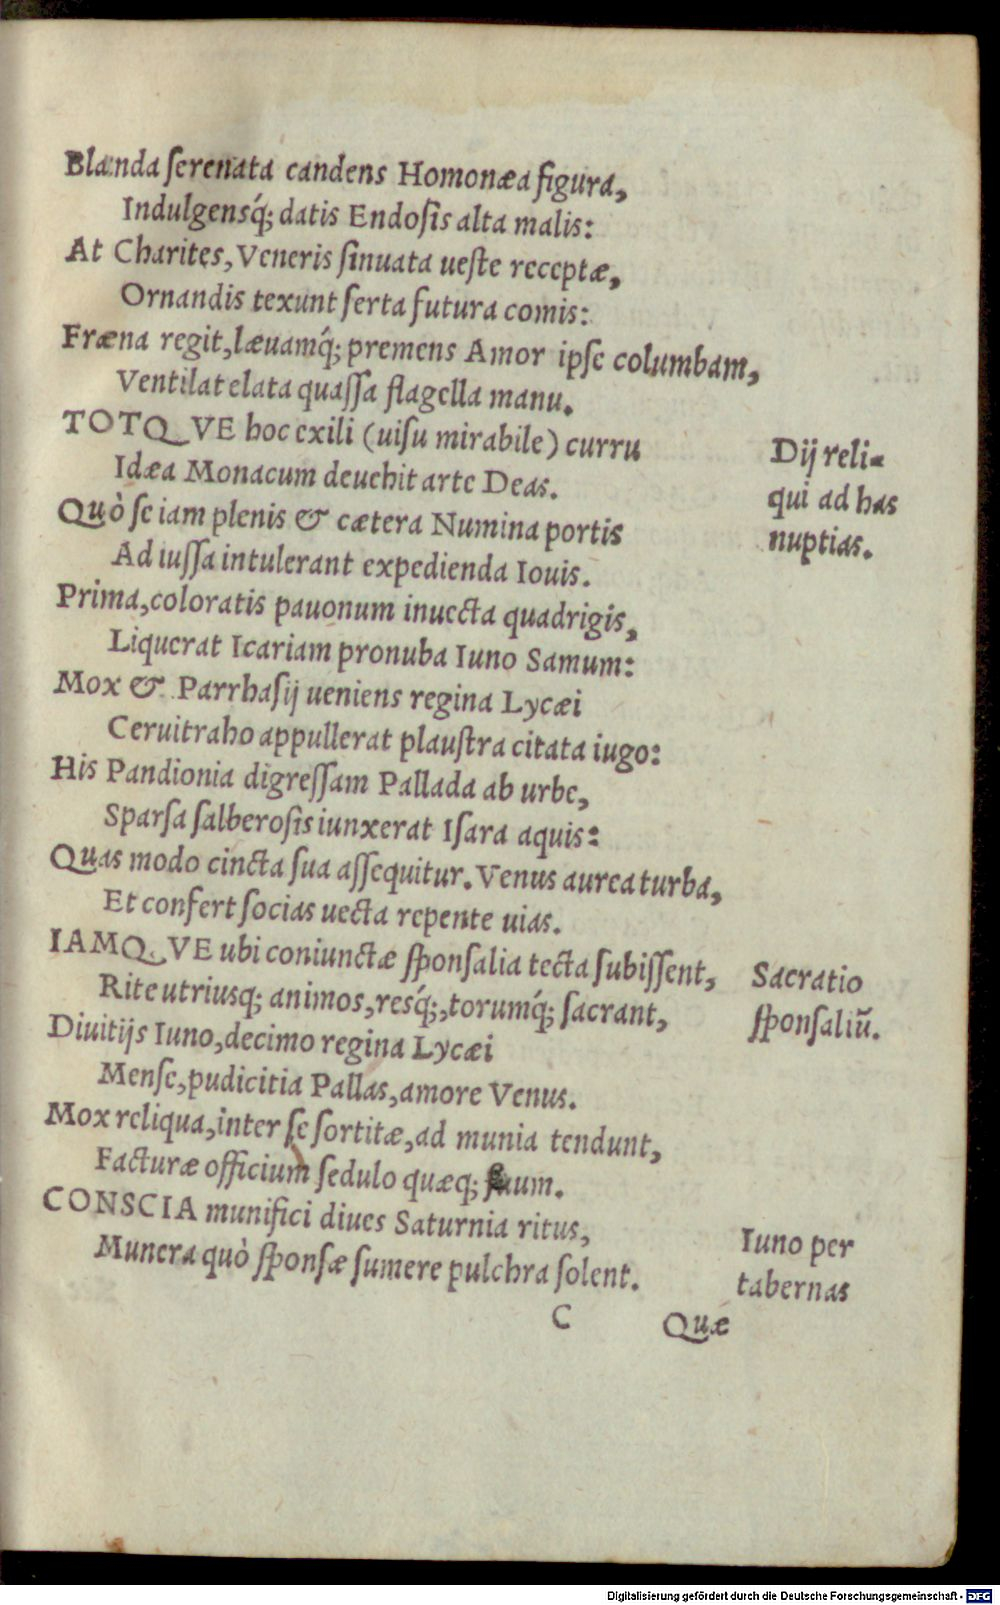 Blanda ſerenata candens Homonæa figura,
Indulgensq́; datis Endoſis alta malis:
At Charites, Veneris ſinuata ueſte receptæ,
Ornandis texunt ſerta futura comis:
Fræna regit, læuamq́; premens Amor ipſe columbam,
Ventilat elata quaſſa flagella manu.
TOTQVE hoc exili (uiſu mirabile) curru
Idæa Monacum deuehit arte Deas.
Dij reli-
qui ad has
nuptias.
Quò ſe iam plenis & cætera Numina portis
Ad iuſſa intulerant expedienda Iouis.
Prima, coloratis pauonum inuecta quadrigis,
Liquerat Icariam pronuba Iuno Samum:
Mox & Parrhaſij ueniens regina Lycæi
Ceruitraho appullerat plauſtra citata iugo:
His Pandionia digreſſam Pallada ab urbe,
Sparſa ſalberoſis iunxerat Iſara aquis:
Quas modo cincta ſua aſſequitur. Venus aurea turba,
Et confert ſocias uecta repente uias.
IAMQVE ubi coniunctæ ſponſalia tecta ſubiſſent,
Rite utriusq; animos, resq́;, torumq́; ſacrant,
Sacratio
ſponſaliū.
Diuitijs Iuno, decimo regina Lycæi
Menſe, pudicitia Pallas, amore Venus.
Mox reliqua, inter ſe ſortitæ, ad munia tendunt,
Facturæ officium ſedulo quæq; ſuum.
CONSCIA munifici diues Saturnia ritus,
Munera quò ſponſæ ſumere pulchra ſolent.
Iuno per
tabernas
C
Quæ
Digitalisierung gefördert durch die Deutsche Forschungsgemeinschaft - DFG